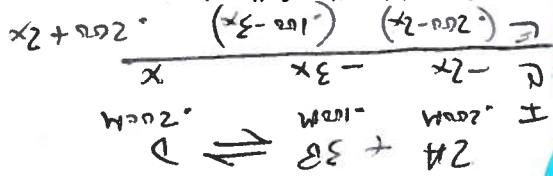 2A + 3B ⇌ D
I .200M .100M .200M
-2x -3x x
(.200-2x) (.100-3x) .200+2x